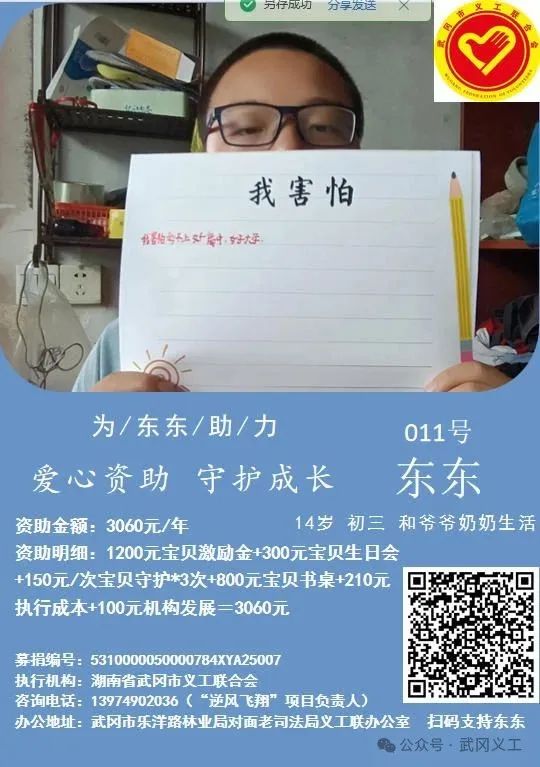 另存成功 分享发送
武冈市义工联合会
WUGANG FEDERATION OF VOLUNTEERS
我害怕
我害怕考不上好高中,好大学.
为/东东/助/力
011号
爱心资助 守护成长
东东
14岁 初三 和爷爷奶奶生活
资助金额：3060元/年
资助明细：1200元宝贝激励金+300元宝贝生日会
+150元/次宝贝守护*3次+800元宝贝书桌+210元
执行成本+100元机构发展＝3060元
募捐编号：5310000050000784XYA25007
执行机构：湖南省武冈市义工联合会
咨询电话：13974902036（“逆风飞翔”项目负责人）
办公地址：武冈市乐洋路林业局对面老司法局义工联办公室
扫码支持东东
公众号·武冈义工